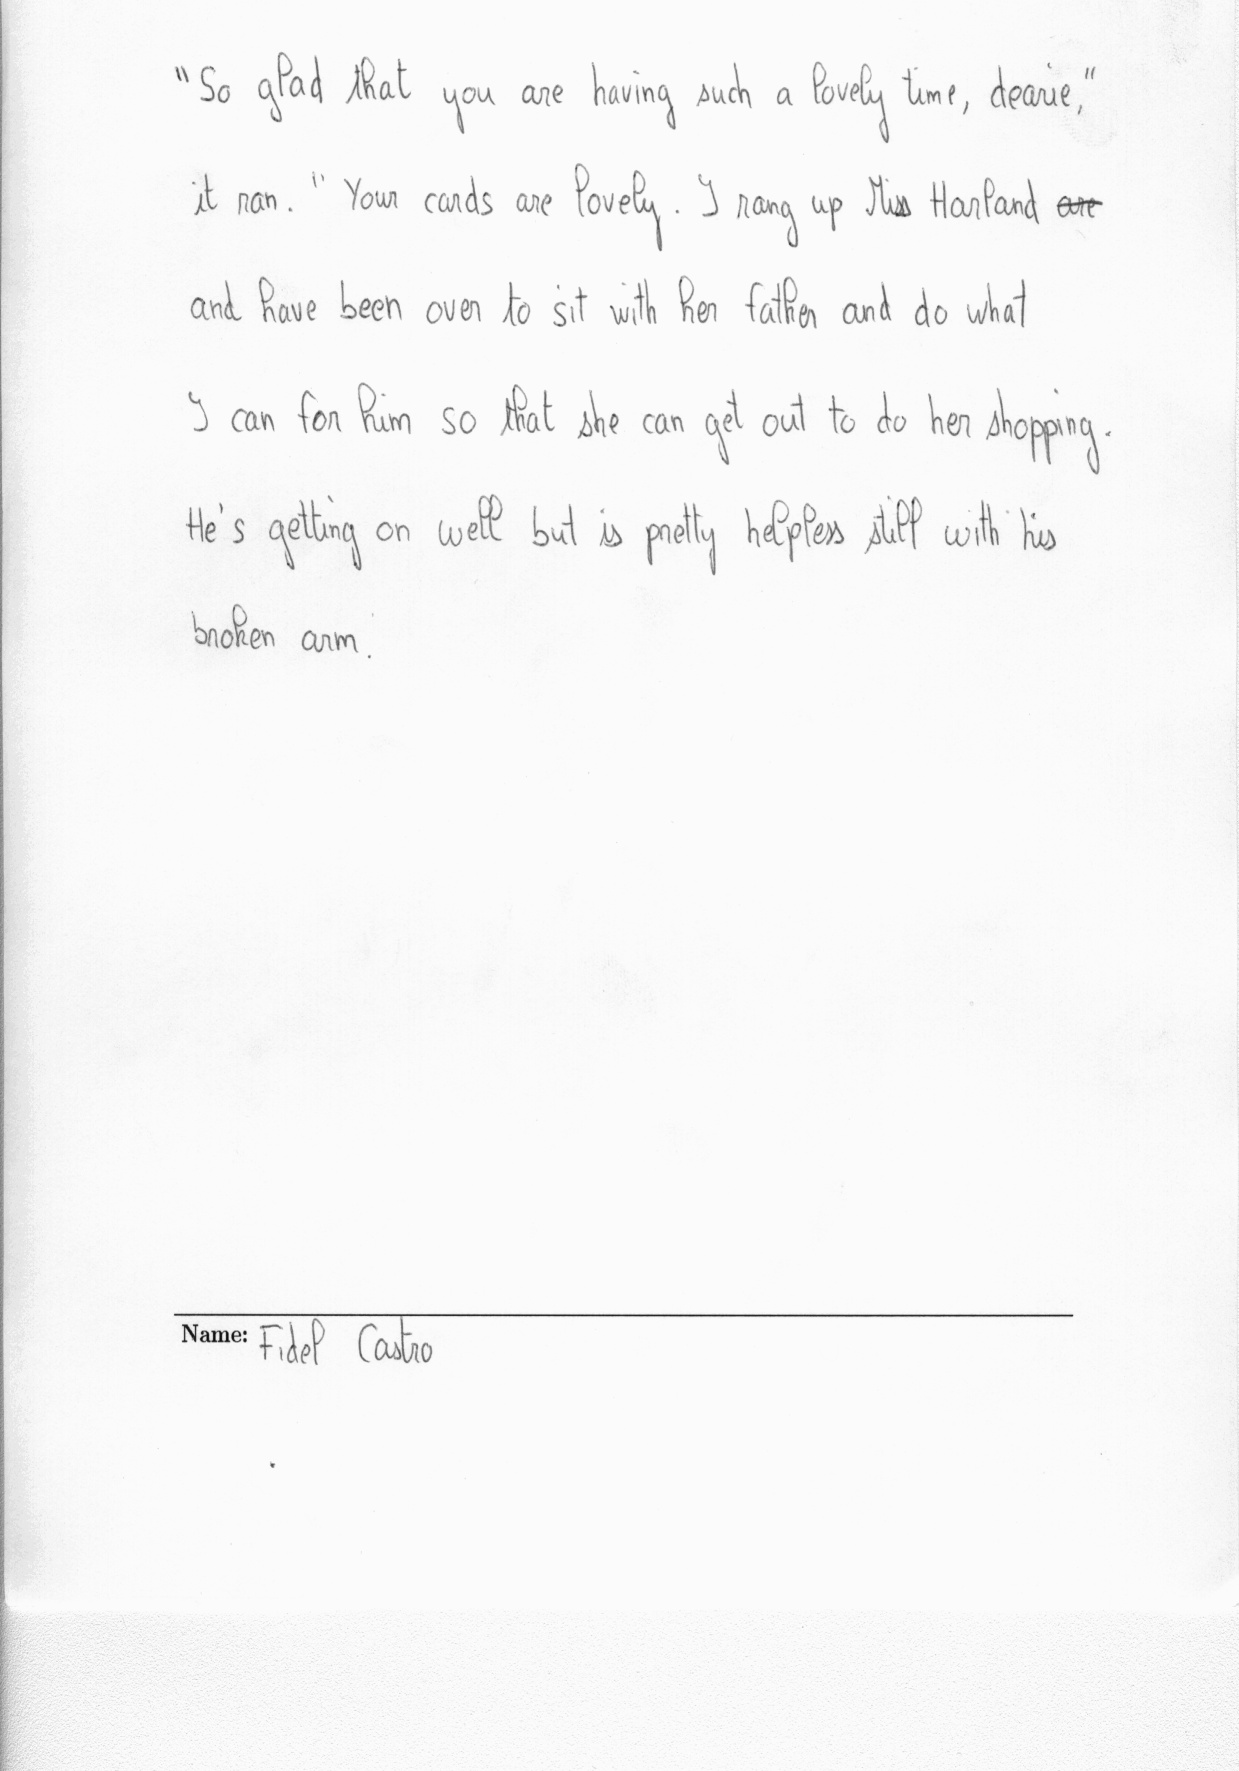 "So glad that you are having such a lovely time, dearie,"
it ran. "Your cards are lovely. I rang up Miss Harland ~~are~~
and have been over to sit with her father and do what
I can for him so that she can get out to do her shopping.
He's getting on well but is pretty helpless still with his
broken arm.
Name: Fidel Castro